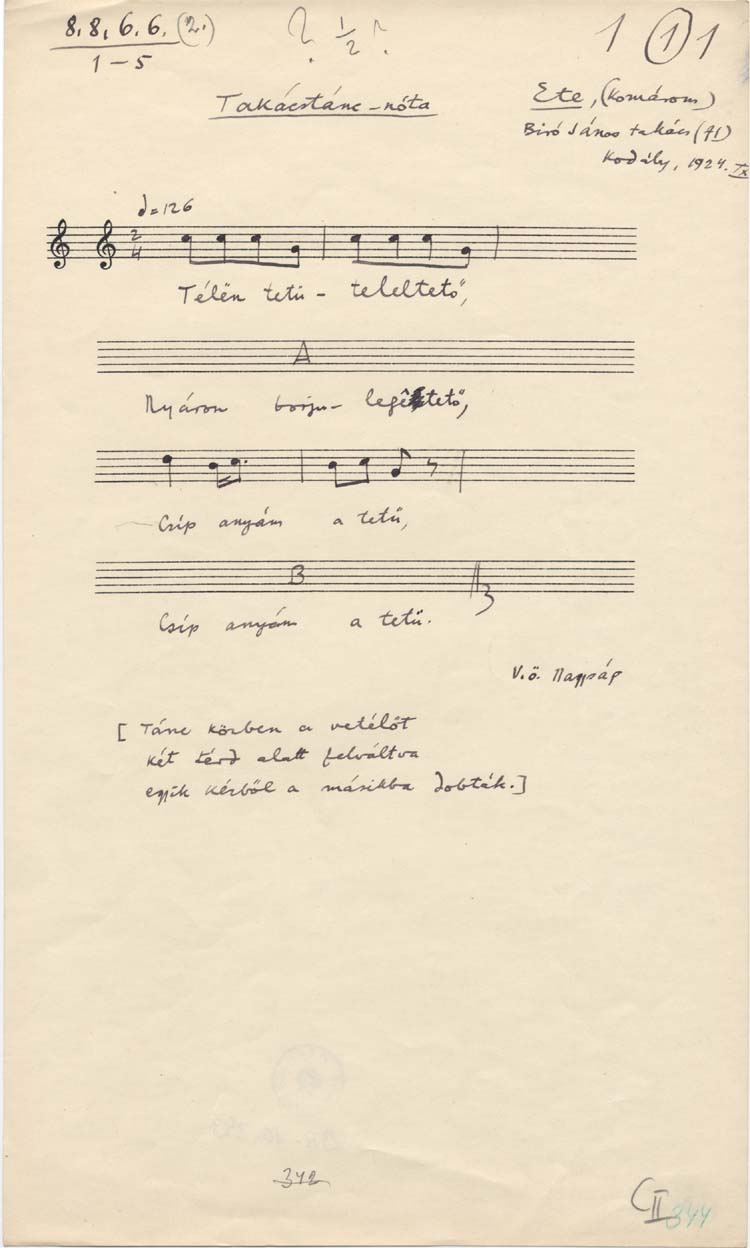 8. 8. 6. 6. (2.)
1-5
? ½ ?
1 (1) 1
Takácstánc-nóta
Ete, (Komárom)
Biró János takács (71)
Kodály, 1924. IX
♩=126
2
4
Télën tetü- teleltető,
A
Nyáron borju- legeltető,
Csíp anyám a tetű,
B
Csíp anyám a tetű.
V.ö. Nagysáp
[Tánc közben a vetélőt
két térd alatt felváltva
egyik kézből a másikba dobták.]
342
C II 344